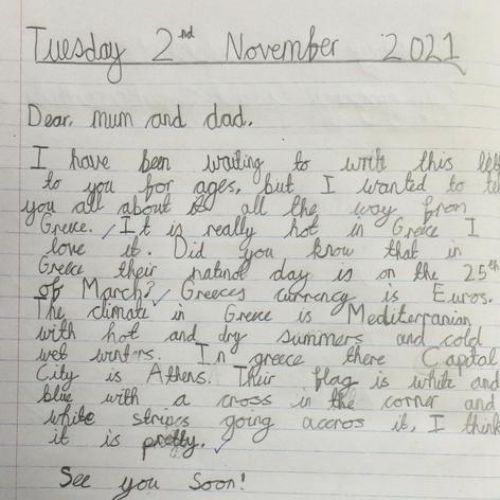 Tuesday 2nd November 2021
Dear, mum and dad,
I have been waiting to write this
to you for ages, but I wanted to
you all about all the way from
Greece. It is really hot in Greece I
love it. Did you know that in
Greece their national day is on the 25th
of March? Greeces currency is Euros.
The climate in Greece is Mediterranian
with hot and dry summers and cold
wet winters. In greece there Capital
City is Athens. Their flag is white and
blue with a cross in the corner and
white stripes going accros it, I think
it is pretty.
See you Soon!